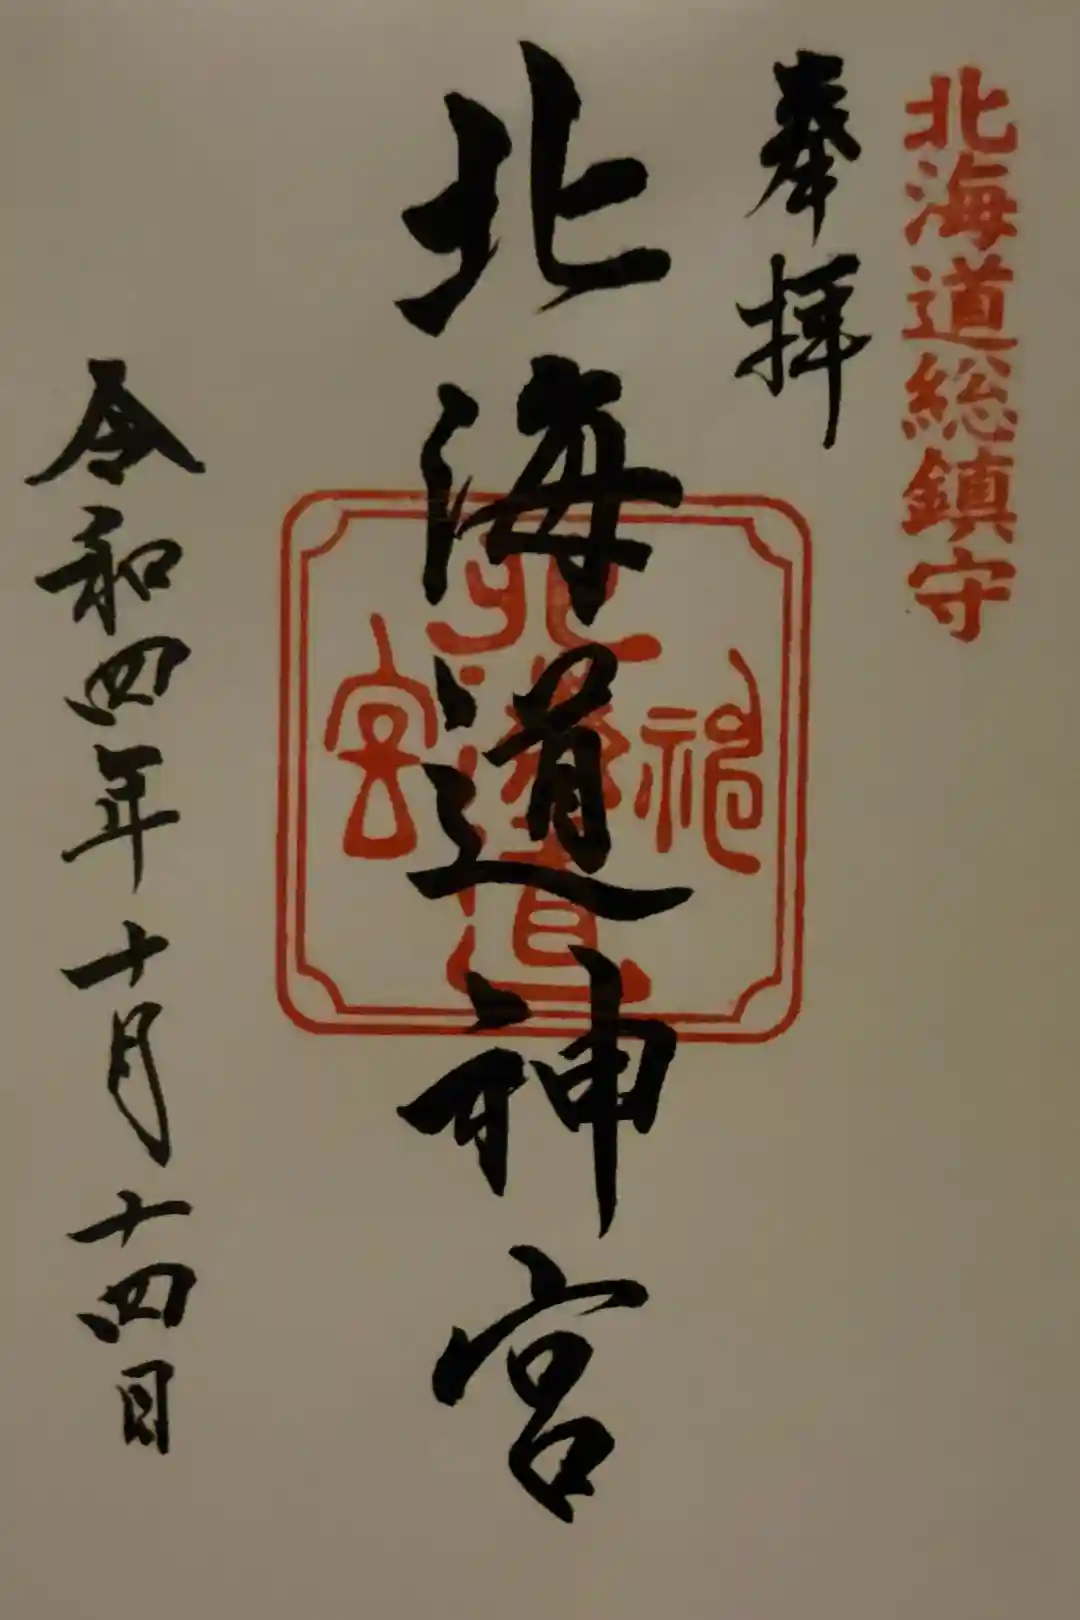 北海道総鎮守
奉拝
北海道神宮
北海道神宮
令和四年十月十四日